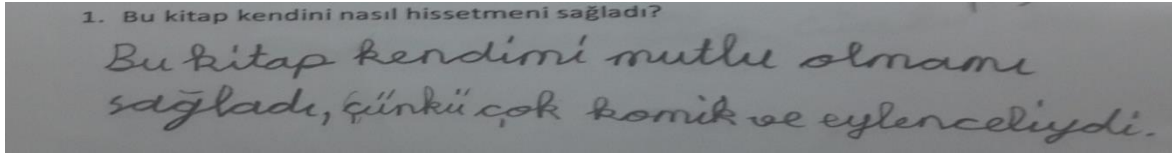 1. Bu kitap kendini nasıl hissetmeni sağladı?
Bu kitap kendimi mutlu olmamı
sağladı, çünkü çok komik ve eylenceliydi.